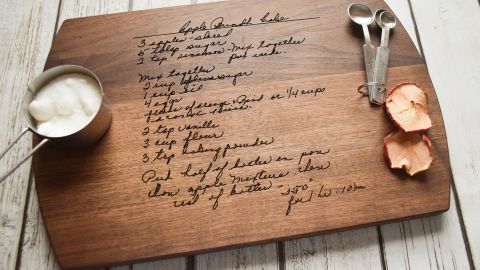 Apple Result Cake
3 apples - sliced
5 tbsp sugar
2 tsp cinnamon - mix together
put aside.
Mix together
2 cup sugar
1 cup oil
4 eggs
juice of orange or 1/4 cups
2 tsp vanilla
3 cup flour
3 tsp baking powder
Put half of batter in pan
then apple mixture then
rest of batter - 350°
for 1 hr. 10 min